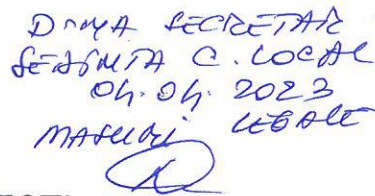 D-NA SECRETAR
SEDINTA C. LOCAL
04.04.2023
MASURI LEGALE